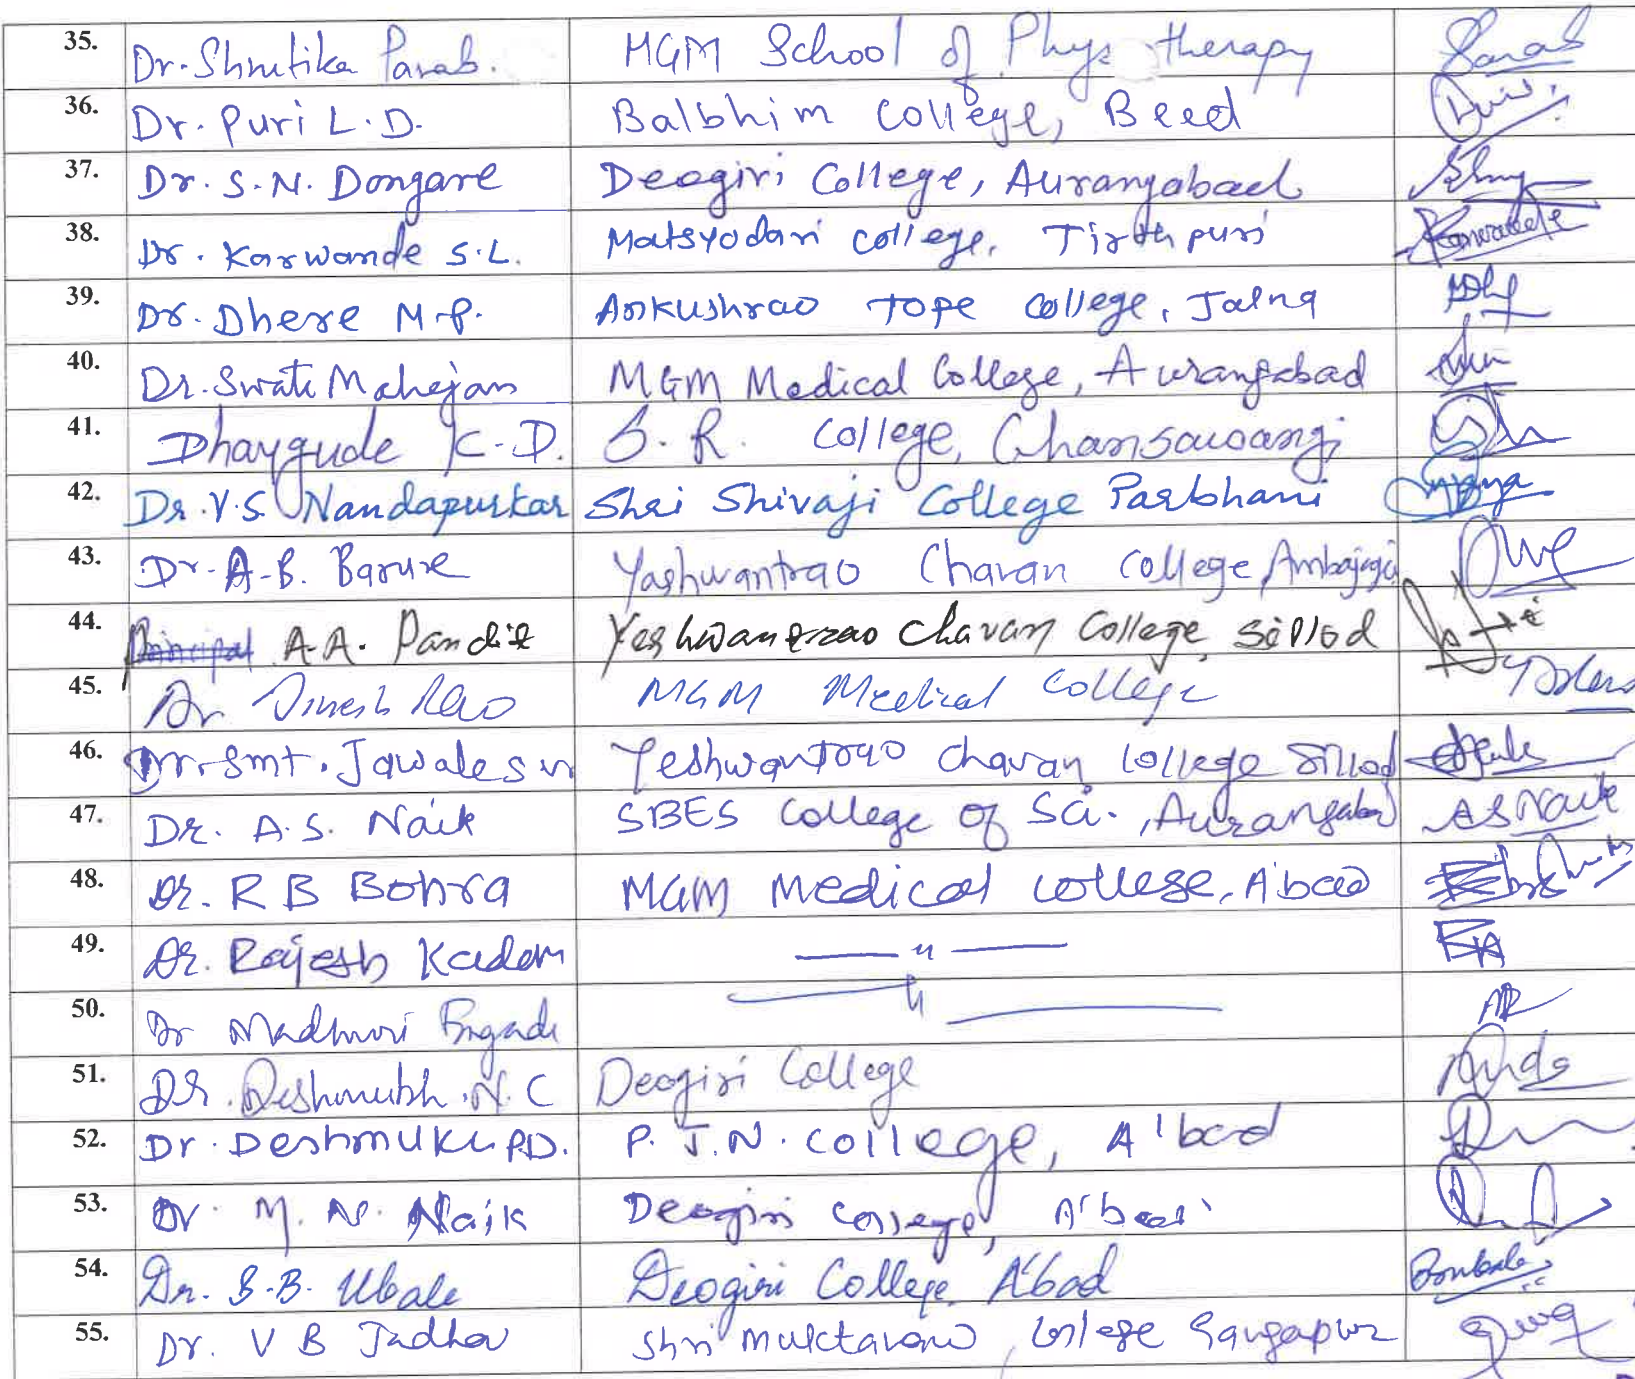 35. Dr. Shrutika Parab. MGM School of Physiotherapy Parab
36. Dr. Puri L.D. Balbhim College, Beed
37. Dr. S.N. Dongare Deogiri College, Aurangabad
38. Dr. Karwande S.L. Matsyodari College, Tirthpuri
39. Dr. Dhere M.P. Ankushrao Tope College, Jalna
40. Dr. Swati Mahajan MGM Medical College, Aurangabad
41. Dhaygude K.D. S.R. College, Ghansawangi
42. Dr. V.S. Nandapurkar Shri Shivaji College Parbhani
43. Dr. A.B. Barure Yashwantrao Chavan College, Ambajogai
44. A.A. Pandit Yeshwantrao Chavan College, Sillod
45. Dr Dinesh Rao MGM Medical College
46. Dr. Smt. Jawale Yeshwantrao Chavan College Sillod
47. Dr. A.S. Naik SBES College of Sci., Aurangabad ASNaik
48. Dr. R B Bohra MGM Medical College, A'bad
49. Dr. Rajesh Kadam — " —
50. Dr Madhuri — " —
51. Dr. Deshmukh N.C Deogiri College
52. Dr. Deshmukh P.D. P.J.N. College, A'bad
53. Dr. M.N. Naik Deogiri College, A'bad
54. Dr. B.B. Ubale Deogiri College, A'bad
55. Dr. V B Jadhav Shri Muktanand College Gangapur